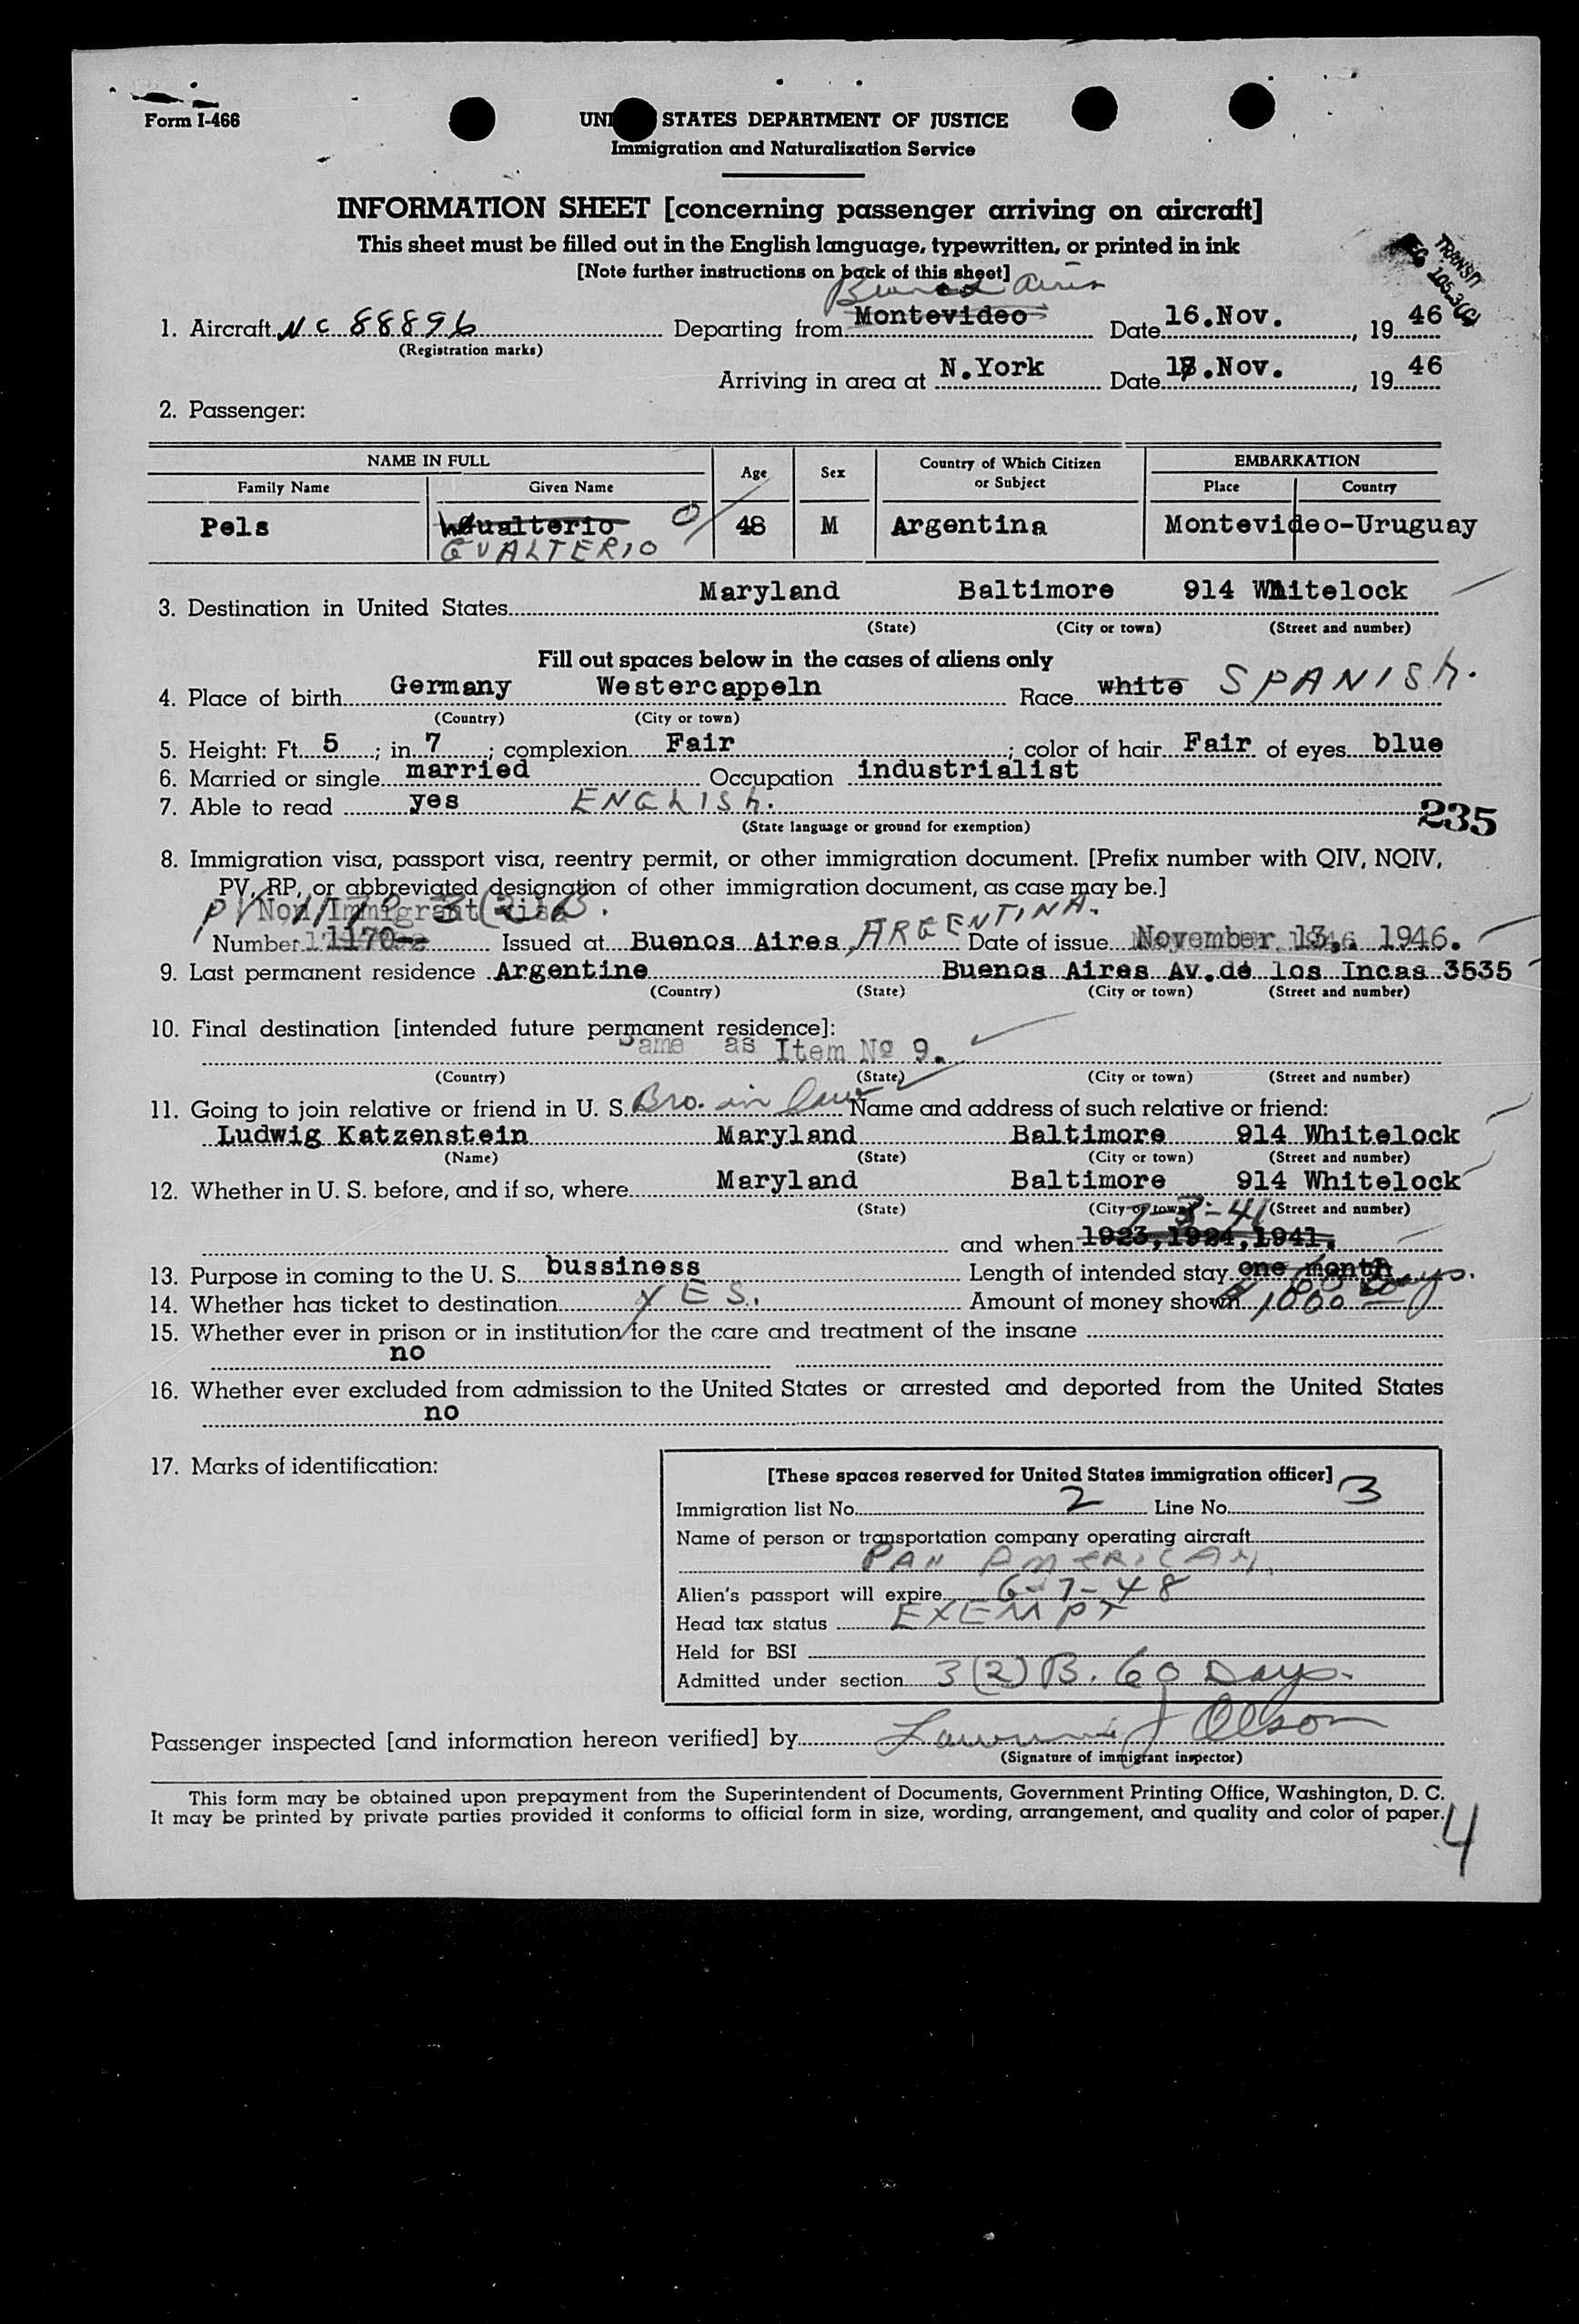 Form I-466
UNI STATES DEPARTMENT OF JUSTICE
Immigration and Naturalization Service
INFORMATION SHEET [concerning passenger arriving on aircraft]
This sheet must be filled out in the English language, typewritten, or printed in ink
[Note further instructions on back of this sheet]
TRANSIT
105.3(4)
Buenos Aires
1. Aircraft NC 88896 Departing from Montevideo Date 16.Nov. , 19 46
(Registration marks)
Arriving in area at N.York Date 17.Nov. , 19 46
2. Passenger:
NAME IN FULL Age Sex Country of Which Citizen or Subject EMBARKATION
Family Name Given Name Place Country
Pels ualterio 48 M Argentina Montevideo-Uruguay
GUALTERIO
3. Destination in United States Maryland Baltimore 914 Whitelock
(State) (City or town) (Street and number)
Fill out spaces below in the cases of aliens only
4. Place of birth Germany Westercappeln Race white SPANISh.
(Country) (City or town)
5. Height: Ft. 5 ; in. 7 ; complexion Fair ; color of hair Fair of eyes blue
6. Married or single married Occupation industrialist
7. Able to read yes ENGLISh.
(State language or ground for exemption)
235
8. Immigration visa, passport visa, reentry permit, or other immigration document. [Prefix number with QIV, NQIV,
PV, RP, or abbreviated designation of other immigration document, as case may be.]
PV 1170 3(2)B.
Non Immigrant Visa
Number 1170-- Issued at Buenos Aires, ARGENTINA. Date of issue November 13, 1946.
9. Last permanent residence Argentine Buenos Aires Av.de los Incas 3535
(Country) (State) (City or town) (Street and number)
10. Final destination [intended future permanent residence]:
Same as Item No 9.
(Country) (State) (City or town) (Street and number)
11. Going to join relative or friend in U. S. Bro. in law Name and address of such relative or friend:
Ludwig Katzenstein Maryland Baltimore 914 Whitelock
(Name) (State) (City or town) (Street and number)
12. Whether in U. S. before, and if so, where Maryland Baltimore 914 Whitelock
(State) (City or town) (Street and number)
-3-41
and when 1923,1924,1941,
13. Purpose in coming to the U. S. bussiness Length of intended stay one month 60 Days.
14. Whether has ticket to destination YES. Amount of money shown 1000
15. Whether ever in prison or in institution for the care and treatment of the insane
no
16. Whether ever excluded from admission to the United States or arrested and deported from the United States
no
17. Marks of identification:
[These spaces reserved for United States immigration officer]
Immigration list No. 2 Line No. 3
Name of person or transportation company operating aircraft
PAN AMERICAN.
Alien's passport will expire 6-7-48
Head tax status EXEMPT
Held for BSI
Admitted under section 3(2)B. 60 Days.
Passenger inspected [and information hereon verified] by Lawrence J Olson
(Signature of immigrant inspector)
This form may be obtained upon prepayment from the Superintendent of Documents, Government Printing Office, Washington, D. C.
It may be printed by private parties provided it conforms to official form in size, wording, arrangement, and quality and color of paper.
4